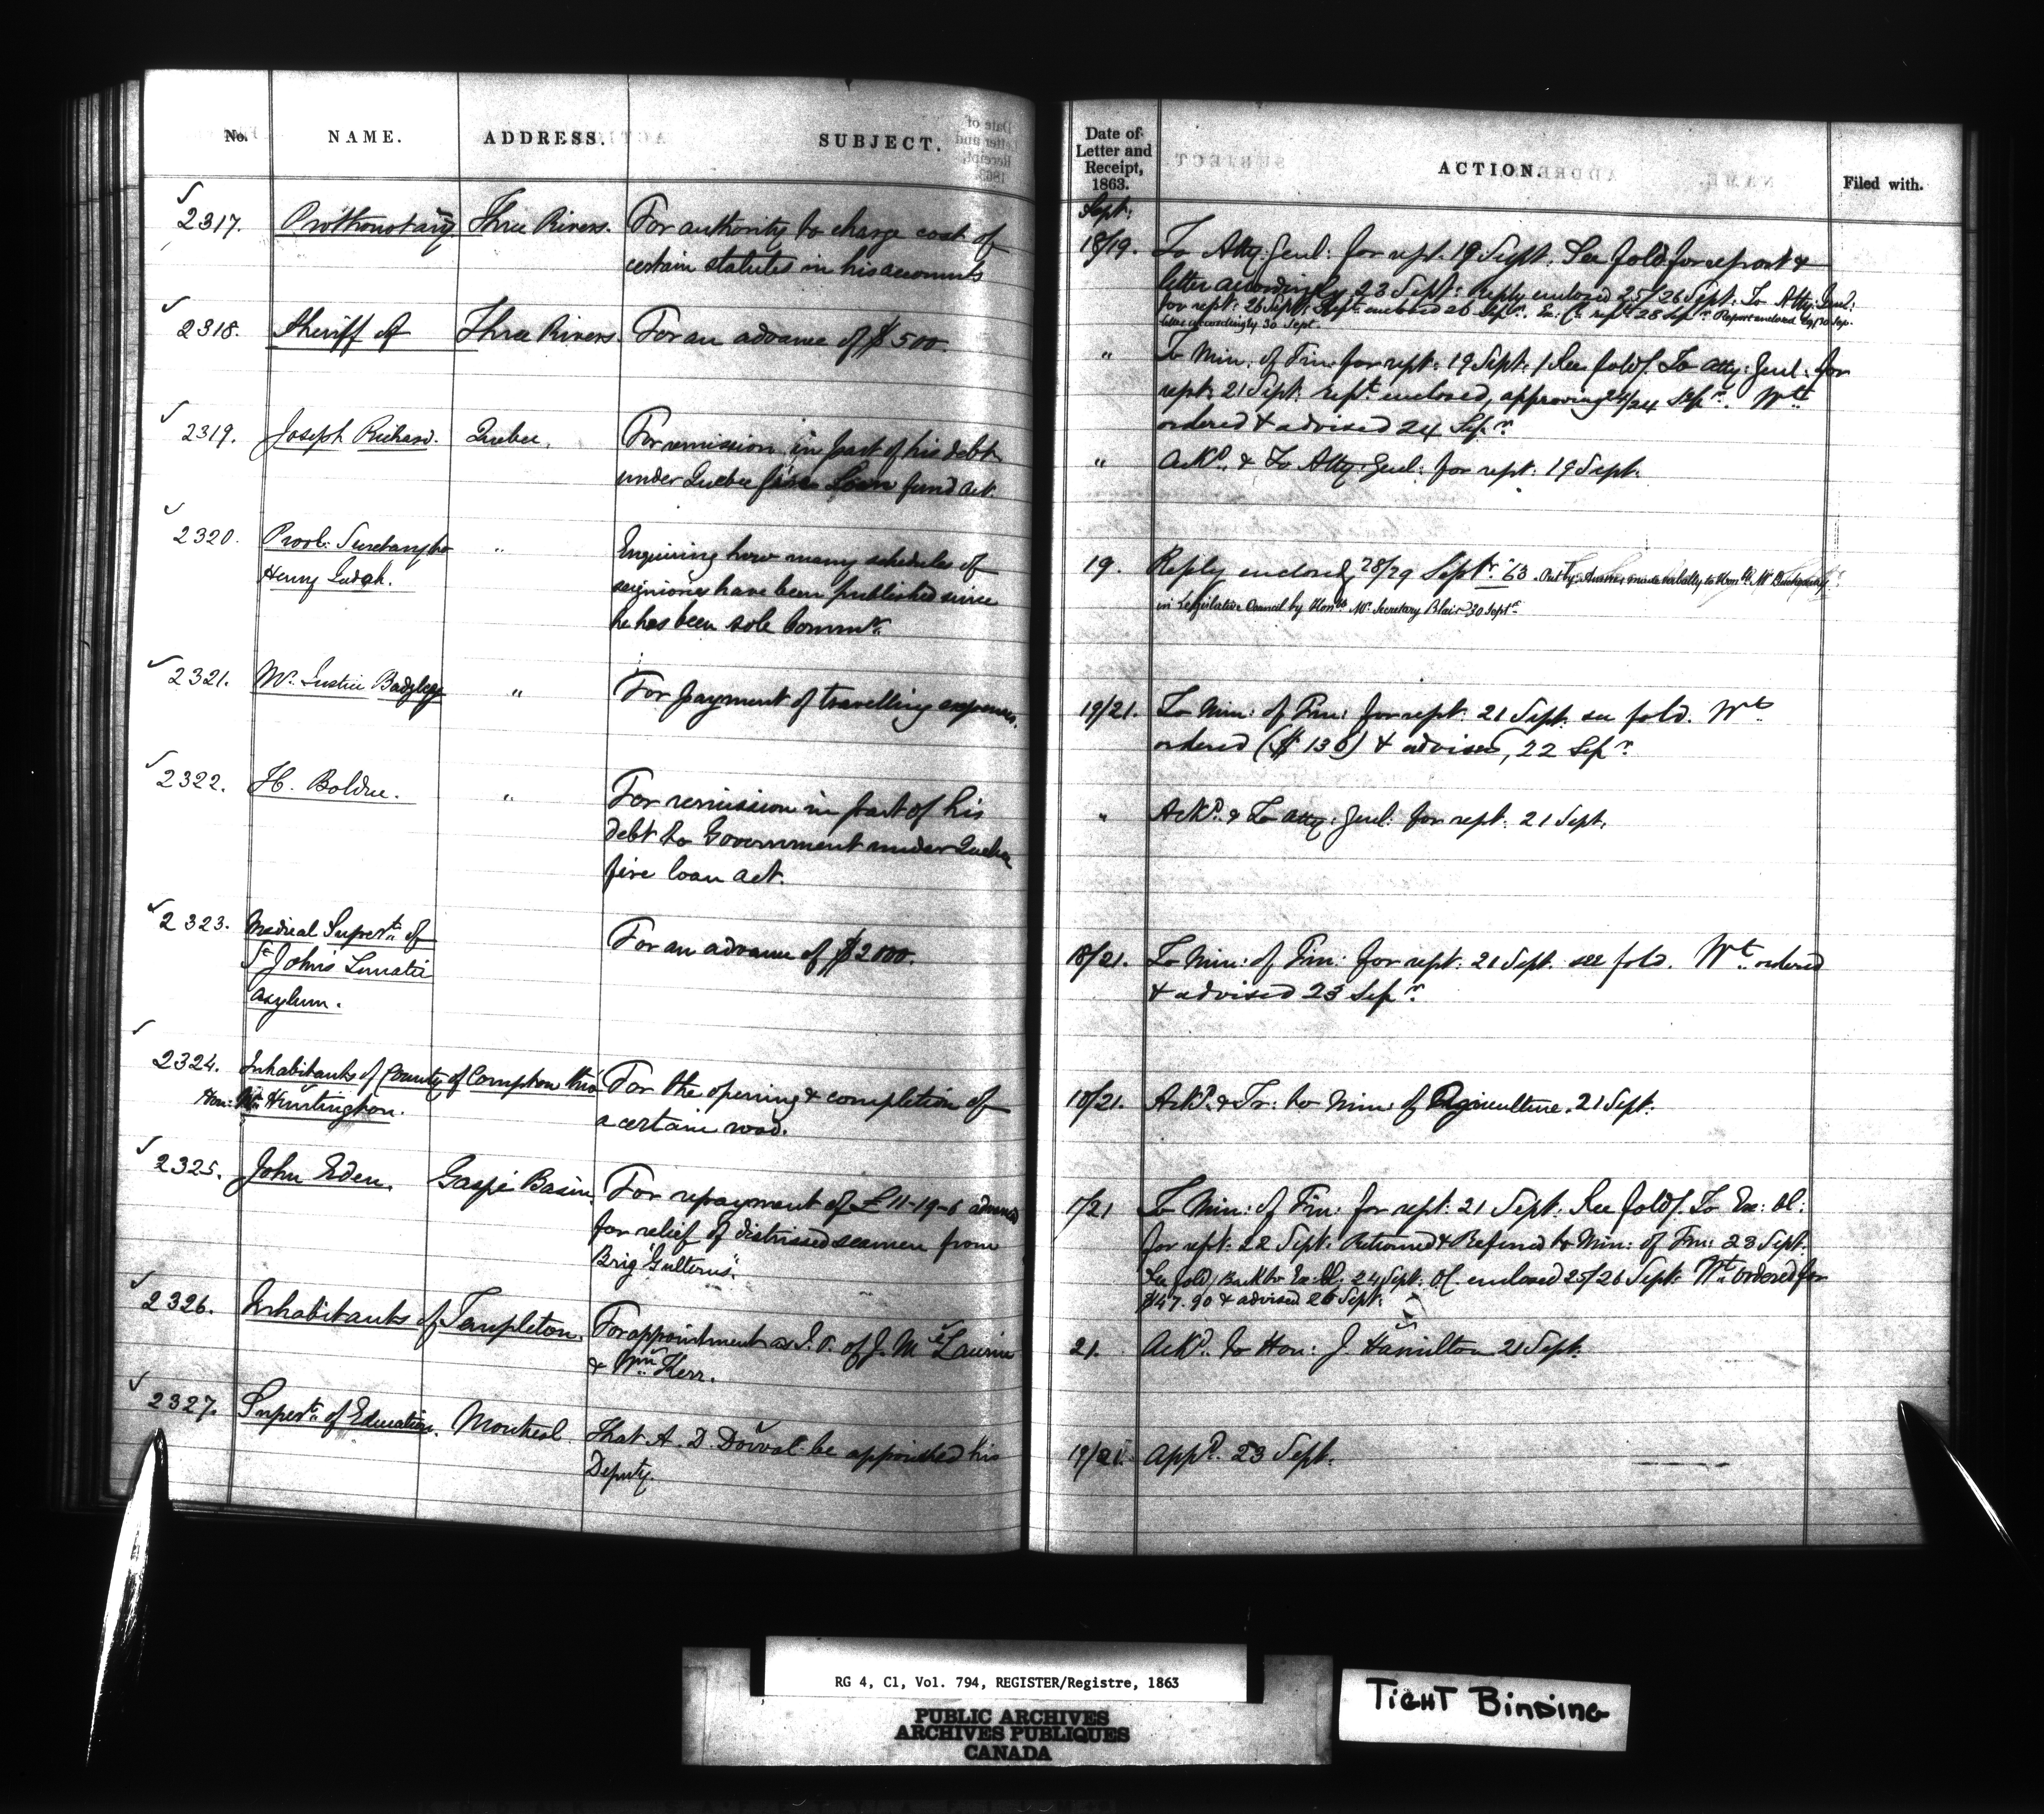 No. NAME. ADDRESS. SUBJECT.
Date of Letter and Receipt, 1863. ACTION. Filed with.
Sept:
2317. Prothonotary Three Rivers. For authority to charge cost of
certain statutes in his accounts
18/19. To Atty: Genl: for rept. 19 Sept. See fold for report &
letter accordingly 23 Sept: reply enclosed 25/26 Sept. To Atty: Genl:
for rept: 26 Sept: Rept: enclosed 26 Sepr. Ex: Cl: rept 28 Sepr. Report enclosed 29/30 Sep.
letter accordingly 30 Sept.
2318. Sheriff of Three Rivers. For an advance of $500.
" To Min: of Fin: for rept: 19 Sept: / See fold / To Atty: Genl: for
rept: 21 Sept: rept enclosed, approving 24/24 Sepr. Wt
ordered & advised 24 Sepr.
2319. Joseph Richard. Quebec. For remission in part of his debt
under Quebec fire Loan fund act.
" Ackd. & To Atty: Genl: for rept: 19 Sept.
2320. Provl: Secretary for "
Henry Judah.
Enquiring how many schedules of
seigniories have been published since
he has been sole Commr.
19. Reply enclosed, 28/29 Septr. '63. Answer made verbally to Honble Mr
in Legislative Council by Honble Mr. Secretary Blair 30 Septr.
2321. Mr. Justice Badgley " For payment of travelling expenses.
19/21. To Min: of Fin: for rept. 21 Sept. see fold. Wt
ordered ($136) & advised, 22 Sepr.
2322. H. Bolduc. " For remission in part of his
debt to Government under Quebec
fire loan act.
" Ackd. & To Atty: Genl: for rept: 21 Sept.
2323. Medical Supertt. of
St. John's Lunatic
Asylum.
For an advance of $2000.
18/21. To Min: of Fin: for rept: 21 Sept. see fold. Wt. ordered
& advised 23 Sepr.
2324. Inhabitants of County of Compton thro'
Hon: Mr. Huntington.
For the opening & completion of
a certain road.
18/21. Ackd. & Tr: to Min: of Agriculture. 21 Sept:
2325. John Eden. Gaspé Basin. For repayment of £11-19-6 advanced
for relief of distressed seamen from
Brig
17/21 To Min: of Fin: for rept: 21 Sept: See fold / To Ex: Cl:
for rept: 22 Sept: Returned & Referred to Min: of Fin: 23 Sept.
See fold / Back to Ex: Cl: 24 Sept: OC. enclosed 25/26 Sept: Wt. ordered for
$47.90 & advised 26 Sept:
2326. Inhabitants of Templeton. For appointment as J. P. of J. McLaurin
& Wm. Kerr.
21. Ackd. to Hon: J Hamilton 21 Sept:
2327. Supertt. of Education. Montreal. That A. D. Dorval be appointed his
Deputy.
19/21. Appd. 23 Sept.
RG 4, C1, Vol. 794, REGISTER/Registre, 1863
PUBLIC ARCHIVES
ARCHIVES PUBLIQUES
CANADA
TIGHT BINDING